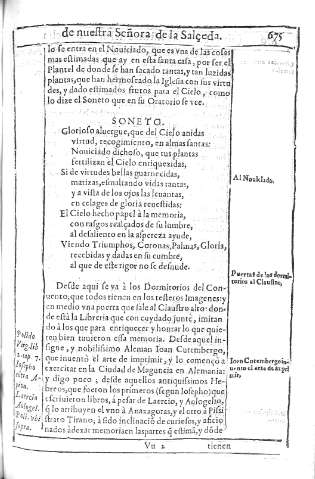 de nuestra Señora de la Salçeda. 675
lo se entra en el Nouiciado, que es vna de las cosas
mas estimadas que ay en esta santa casa, por ser el
Plantel de donde se han sacado tantas, y tan luzidas
plantas, que han hermoseado la Iglesia con sus virtu
des, y dado estimados frutos para el Cielo, como
lo dize el Soneto que en su Oratorio se vee.
SONETO.
Glorioso aluergue, que del Cielo anidas
virtud, recogimiento, en almas santas:
Nouiciado dichoso, que tus plantas
fertilizan el Cielo enriquezidas,
Si de virtudes bellas guarnecidas,
matizas, esmaltando vidas tantas,
y a vista de los ojos las leuantas,
en celages de gloria reuestidas:
El Cielo hecho papel à la memoria,
con rasgos realçados de su lumbre,
al desaliento en la aspereza ayude,
Viendo Triumphos, Coronas, Palmas, Gloria,
recebidas y dadas en su cumbre,
al que de este rigor no se desnude.
Al Nouiciado.
Desde aqui se và à los Dormitorios del Con-
uento, que todos tienen en los testeros Imagenes: y
en medio vna puerta que sale al Claustro alto: don
de està la Libreria que con cuydado juntè, imitan
do à los que para enriquecer y honrar lo que quie-
ren bien tuuieron essa memoria. Desde aquel in-
signe, y nobilissimo Aleman Ioan Cutembergo,
que inuentò el arte de imprimir, y lo començò à
exercitar en la Ciudad de Maguncia en Alemania:
y digo poco; desde aquellos antiquissimos He-
breos, que fueron los primeros (segun Iosepho) que
escriuieron libros, à pesar de Laercio, y Aulogelio,
q̃ lo atribuyen el vno à Anaxagoras, y el otro à Pisis
trato Tirano, à sido inclinaciõ de curiosos, y aficio
nados à dexar memorias en las partes q̃ estimã, y dõde
Puertas de los dormi-
torios al Claustro.
Ioan Cutembergo in-
uentò el arte de
Polido
Virg. lib
2. cap. 7.
Iosepho
Laercio
Aulogel.
supra.
Vu 2 tienen